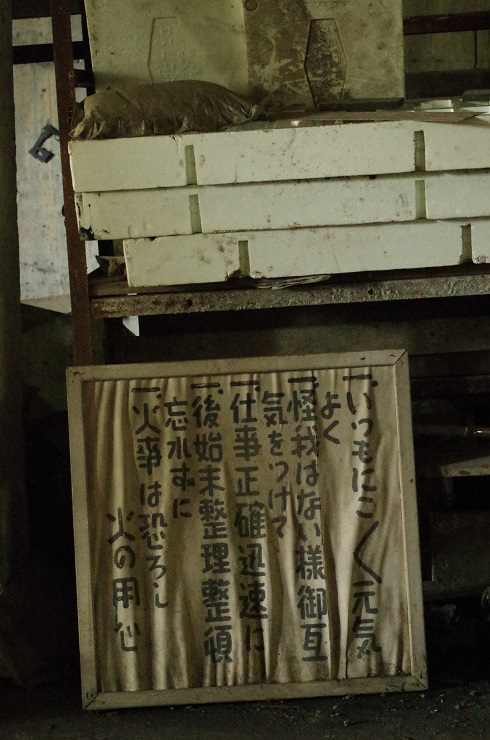 一、いつもにこ〱元気
よく
一、怪我はない様御互
気をつけて
一、仕事正確迅速に
一、後始末整理整頓
忘れずに
一、火事は恐ろし
火の用心